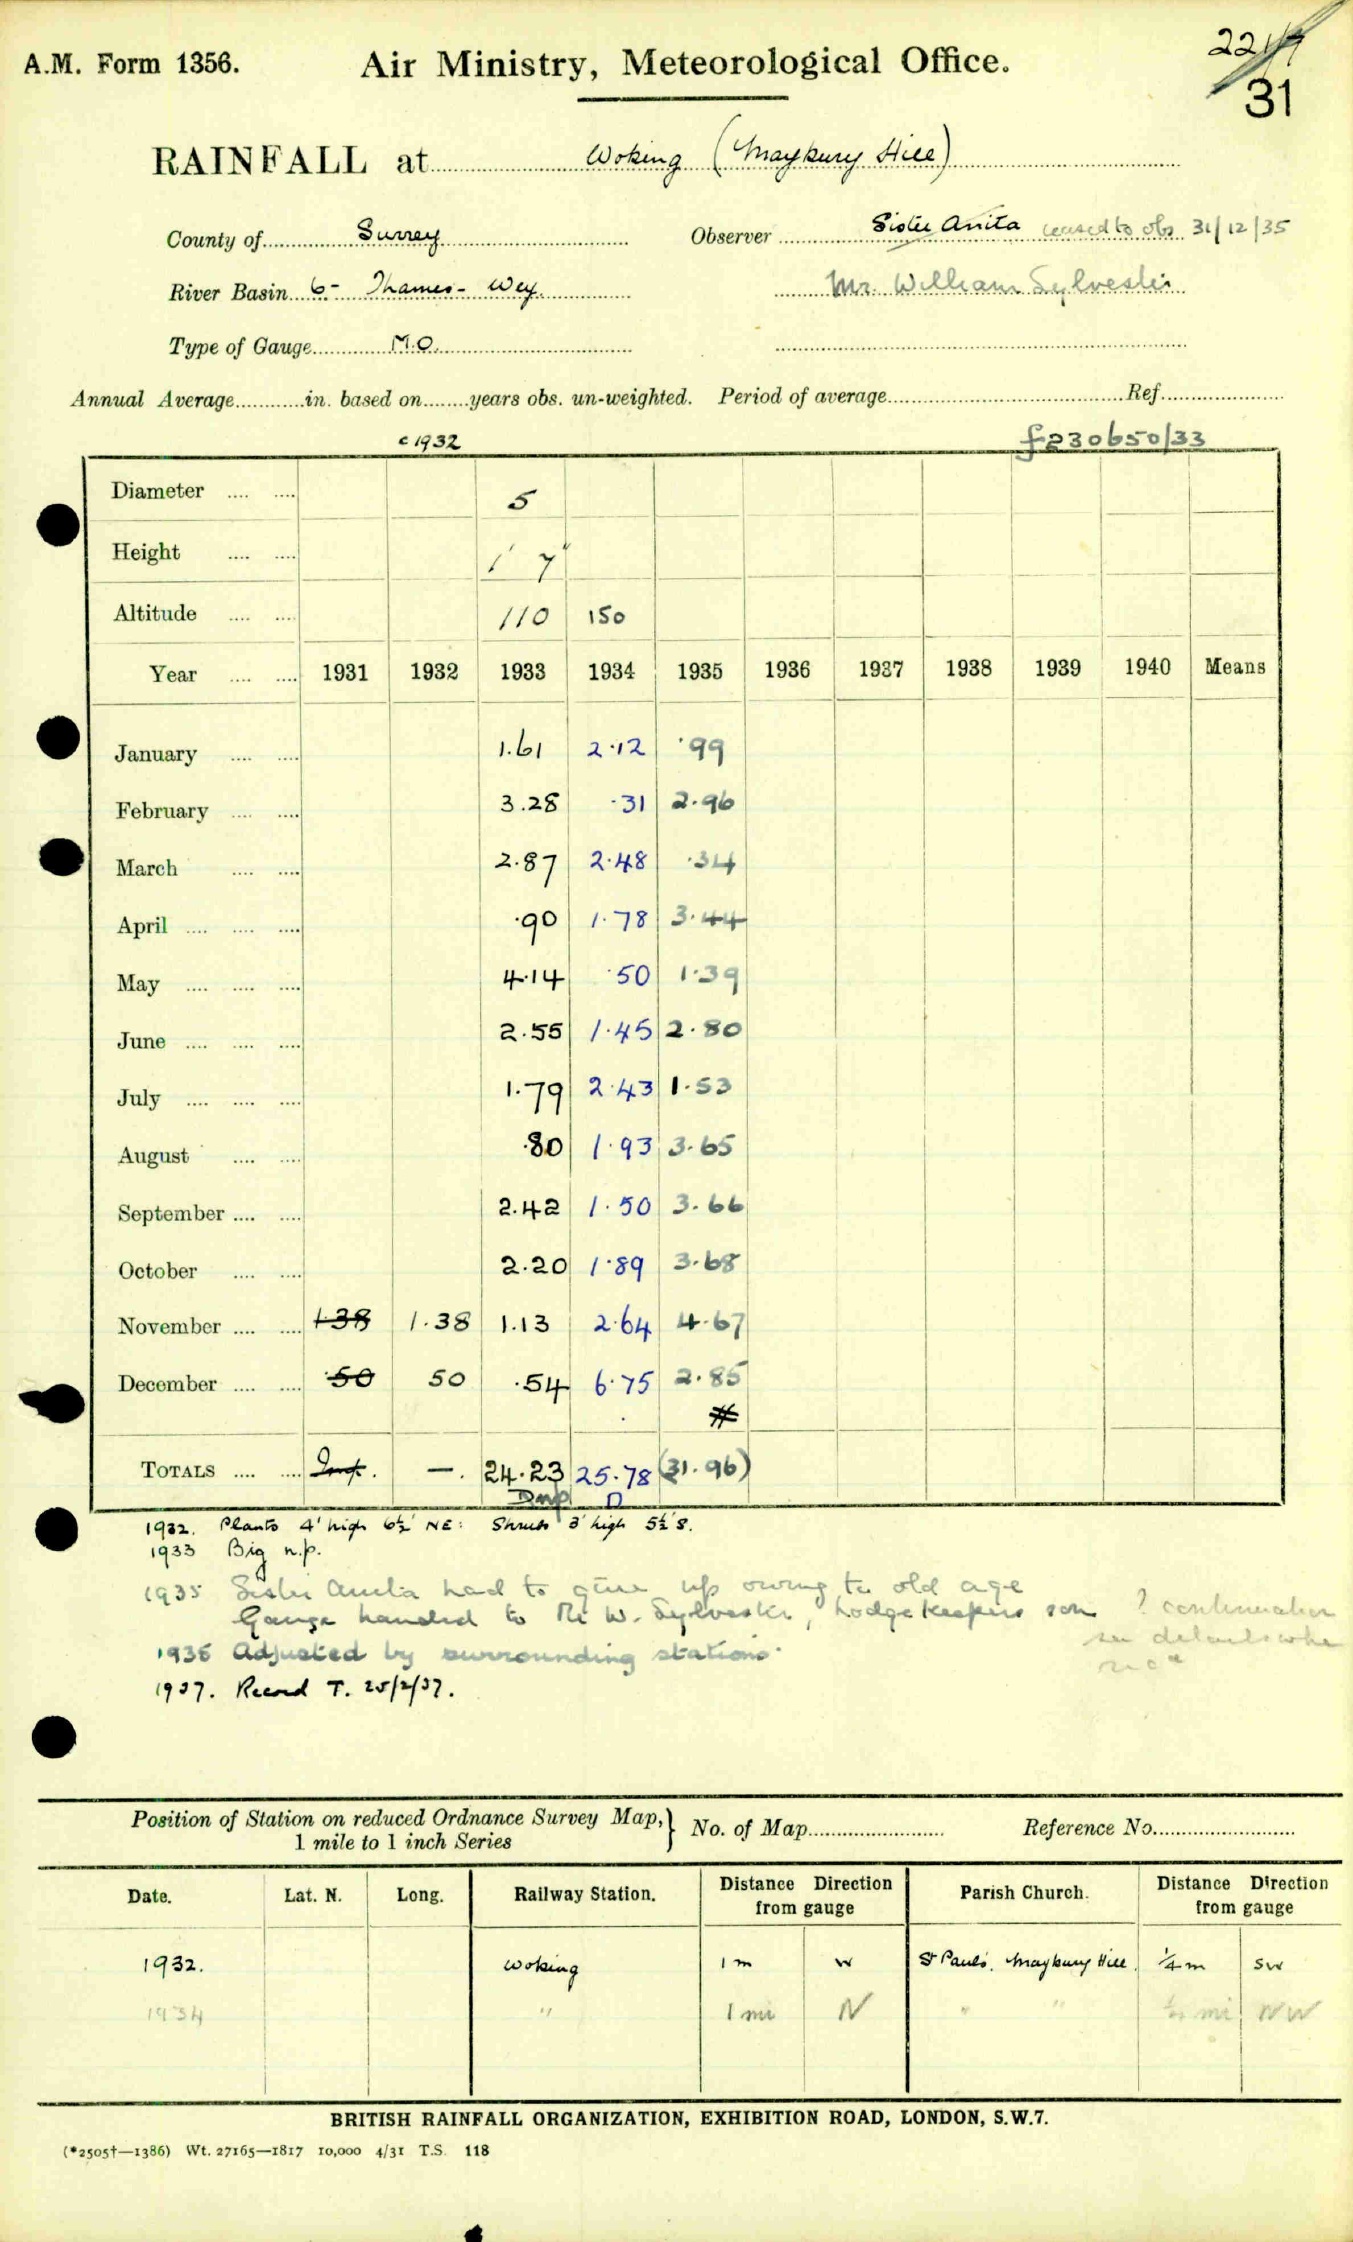 A.M. Form 1356.
Air Ministry, Meteorological Office.
31
RAINFALL at Woking (Maybury Hill)
County of Surrey Observer Sister Anita ceased to obs 31/12/35
River Basin 6- Thames- Wey. Mr. William Sylvester
Type of Gauge M.O.
Annual Average in. based on years obs. un-weighted. Period of average Ref.
c 1932 £230650/33
Diameter 5
Height 1' 7"
Altitude 110 150
Year 1931 1932 1933 1934 1935 1936 1937 1938 1939 1940 Means
January 1.61 2.12 .99
February 3.28 .31 2.96
March 2.87 2.48 .34
April .90 1.78 3.44
May 4.14 .50 1.39
June 2.55 1.45 2.80
July 1.79 2.43 1.53
August .80 1.93 3.65
September 2.42 1.50 3.66
October 2.20 1.89 3.68
November 1.38 1.38 1.13 2.64 4.67
December .50 50 .54 6.75 2.85
#
TOTALS Inf. —. 24.23 25.78 (31.96)
Dnp D
1932. Plants 4' high 6½' NE: Shrub 3' high 5½' S.
1933 Big n.p.
1935 Sister Anita had to give up owing to old age
Gauge handed to Mr W. Sylvester, Lodge Keepers son ? continuation
see details
1935 Adjusted by surrounding stations.
1937. Record T. 25/2/37.
Position of Station on reduced Ordnance Survey Map, } No. of Map Reference No.
1 mile to 1 inch Series
Date. Lat. N. Long. Railway Station. Distance Direction from gauge Parish Church. Distance Direction from gauge
1932. Woking 1 m W St Pauls. Maybury Hill. ¼ m SW
1934 " 1 mi N " " mi NW
BRITISH RAINFALL ORGANIZATION, EXHIBITION ROAD, LONDON, S.W.7.
(*2505†—1386) Wt. 27165—1817 10,000 4/31 T.S. 118